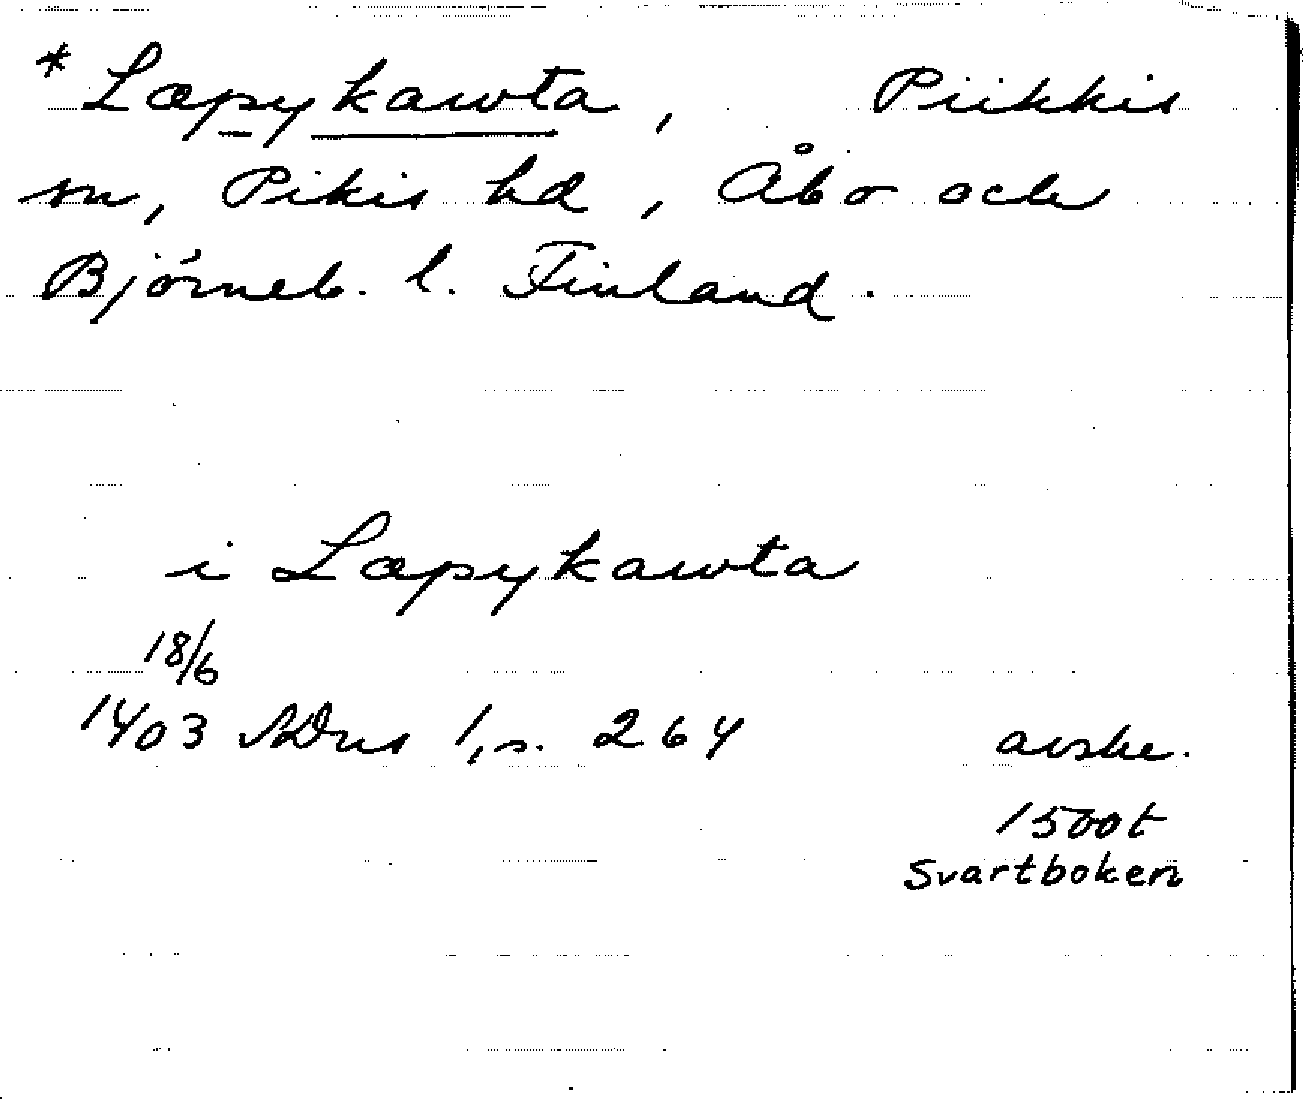 * Læpykawta, Piikkis
sn, Pikis hd, Åbo och
Björneb. l. Finland.
i Læpykawta
18/6
1403 SDns 1, s. 264 avskr.
1500t
Svartboken